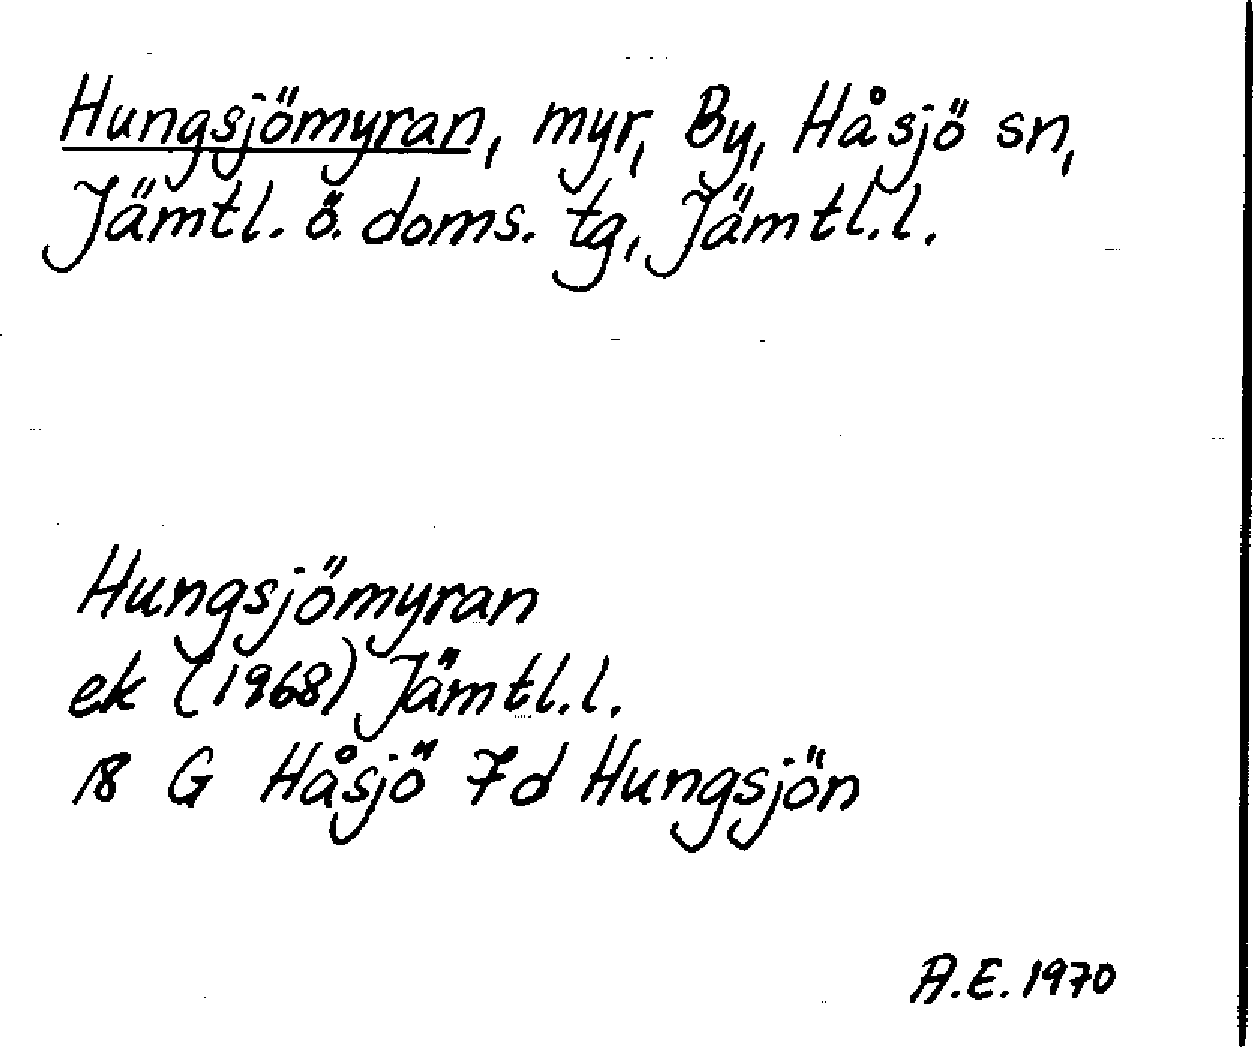 Hungsjömyran, myr, By, Håsjö sn,
Jämtl. ö. doms. tg, Jämtl.l.
Hungsjömyran
ek (1968) Jämtl.l.
18 G Håsjö 7d Hungsjön
A.E. 1970